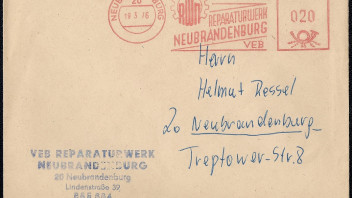 NEUBRANDENBURG
20
19.5.76
RWN
REPARATURWERK
NEUBRANDENBURG
VEB
020
Herrn
Helmut Ressel
20 Neubrandenburg
Treptower-Str. 8
VEB REPARATURWERK
NEUBRANDENBURG
20 Neubrandenburg
Lindenstraße 32